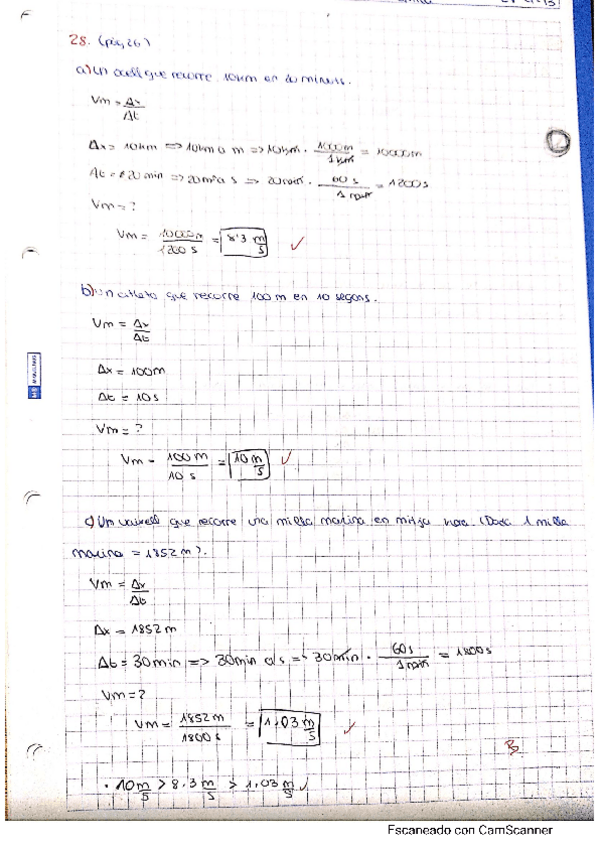 28. (pàg 26)
a) Un ocell que recorre 10km en 20 minuts.
Vm = Δx/Δt
Δx = 10km => 10km a m => 10km · 1000m/1km = 10000m
Δt = 20 min => 20m a s => 20min · 60s/1min = 1200s
Vm = ?
Vm = 10000m/1200s = 8'3 m/s ✓
b) Un atleta que recorre 100m en 10 segons.
Vm = Δx/Δt
Δx = 100m
Δt = 10s
Vm = ?
Vm = 100m/10s = 10 m/s ✓
c) Un vaixell que recorre una milla marina en mitja hora. (Dada 1 milla
marina = 1852m).
Vm = Δx/Δt
Δx = 1852m
Δt = 30min => 30min a s => 30min · 60s/1min = 1800s
Vm = ?
Vm = 1852m/1800s = 1,03 m/s ✓
B
· 10 m/s > 8.3 m/s > 1,03 m/s ✓
Escaneado con CamScanner